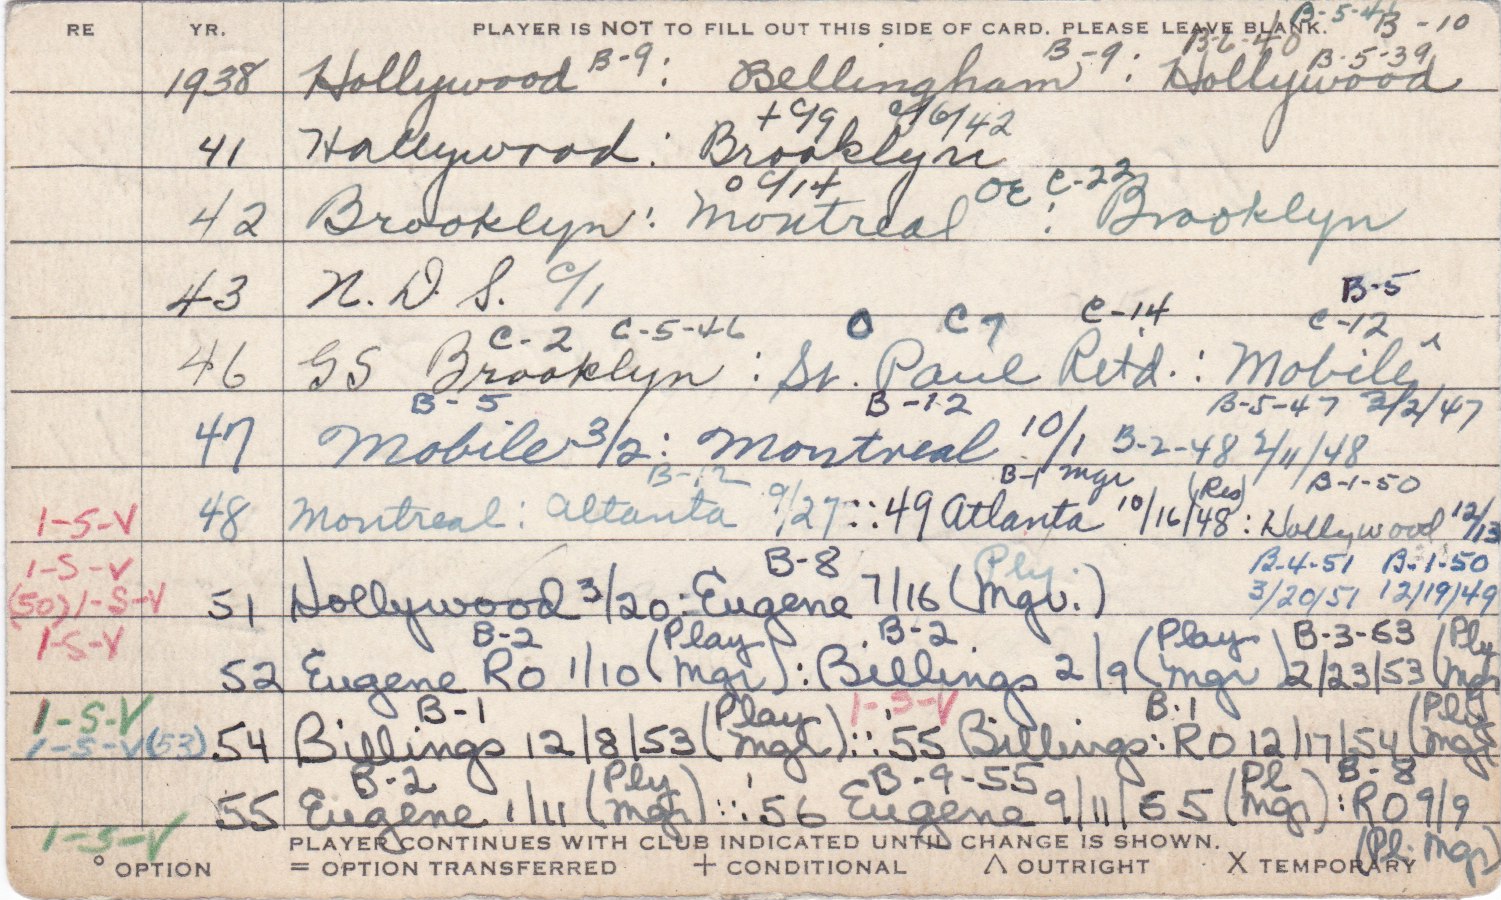 RE YR. PLAYER IS NOT TO FILL OUT THIS SIDE OF CARD. PLEASE LEAVE BLANK. B-5-41 B-10
B-9 B-9 B-6-40 B-5-39
1938 Hollywood : Bellingham : Hollywood
+ C/9 C/6/42
41 Hollywood : Brooklyn
o C/14 OE C-22
42 Brooklyn : Montreal : Brooklyn
43 N.D.S. C/1
B-5
C-2 C-5-46 O C7 C-14 C-12
46 GS Brooklyn : St. Paul Retd. : Mobile
B-5 B-12 B-5-47 3/2/47
47 Mobile 3/2 : Montreal 10/1 B-2-48 2/11/48
B-12 B-1 Mgr (Res) B-1-50
1-S-V 48 Montreal : Altanta 9/27 :: 49 Atlanta 10/16/48 : Hollywood 12/13
1-S-V B-8 Ply. B-4-51 B-1-50
(50) 1-S-V 51 Hollywood 3/20 : Eugene 7/16 (Mgr.) 3/20/51 12/19/49
1-S-V B-2 Play B-2 Play B-3-53 Ply
52 Eugene RO 1/10 (Mgr) : Billings 2/9 (Mgr) 2/23/53 (Mgr)
1-S-V B-1 Play 1-S-V B-1 Ply
1-S-V (53) 54 Billings 12/8/53 (Mgr) :: '55 Billings : RO 12/17/54 (Mgr)
B-2 Ply B-9-55 Pl B-8
55 Eugene 1/11 (Mgr) :: '56 Eugene 9/11/55 (Mgr) : RO 9/9
1-S-V PLAYER CONTINUES WITH CLUB INDICATED UNTIL CHANGE IS SHOWN. (Pl-Mgr)
° OPTION = OPTION TRANSFERRED + CONDITIONAL Λ OUTRIGHT X TEMPORARY